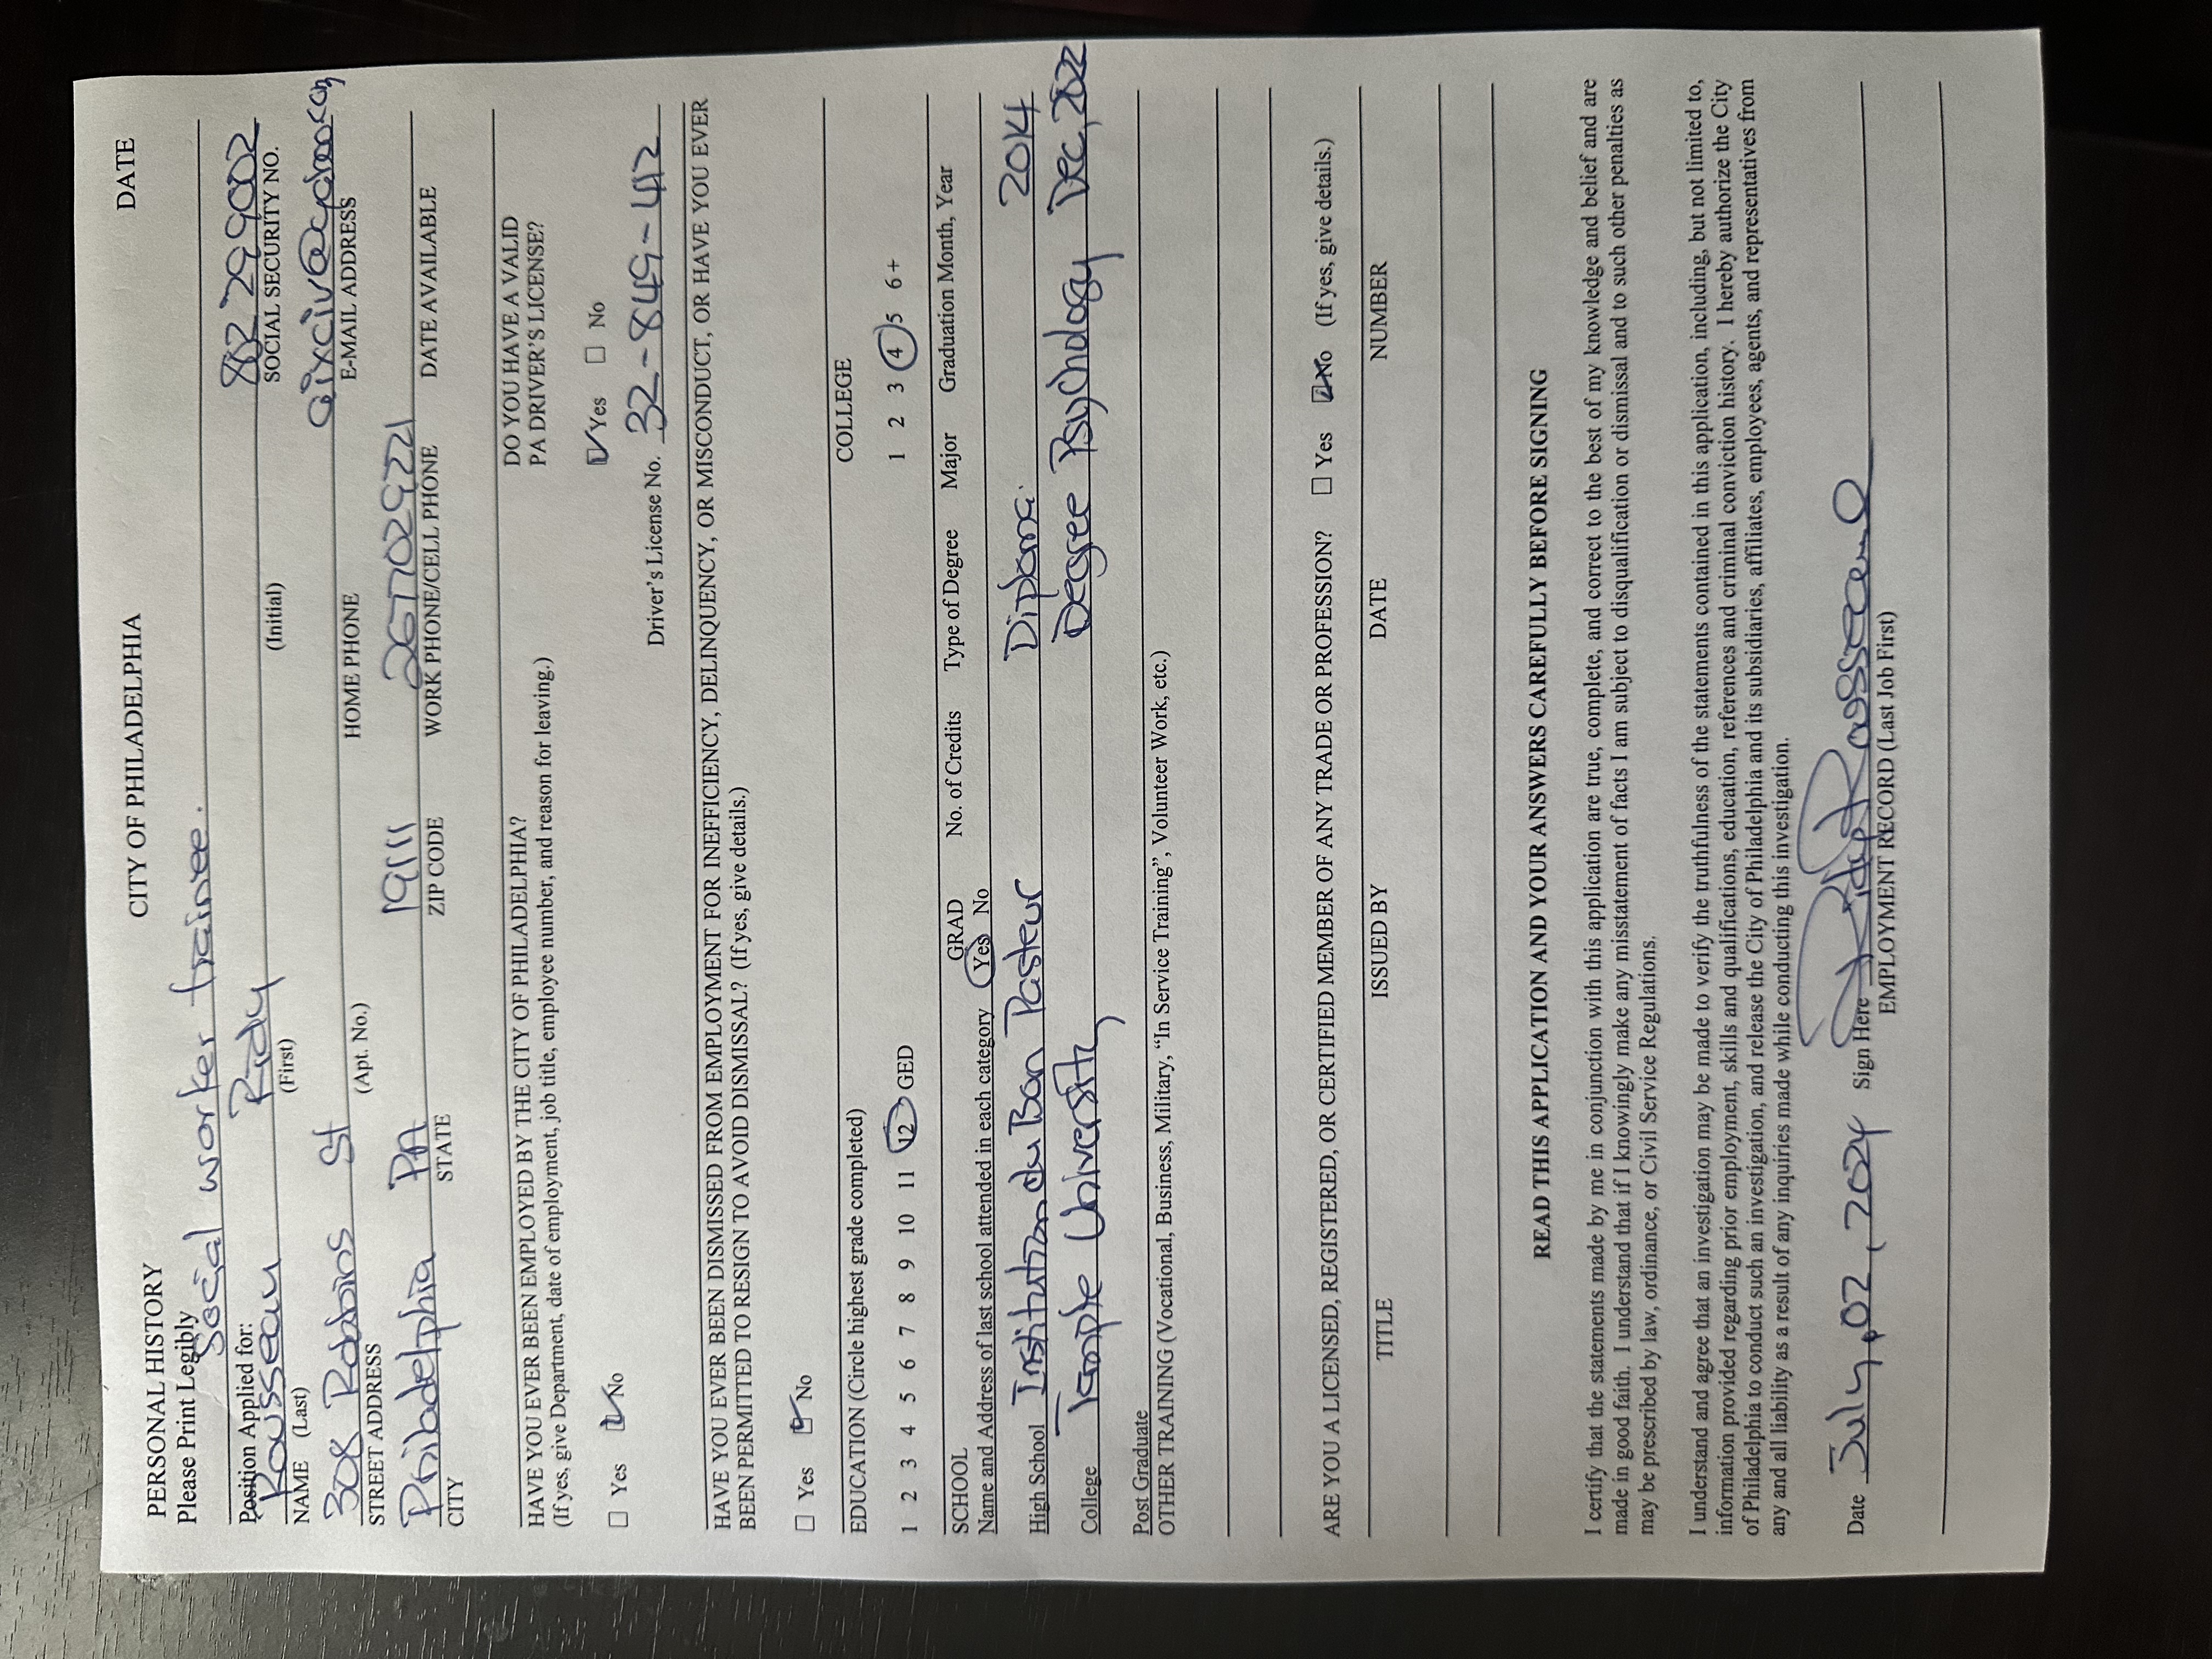 PERSONAL HISTORY CITY OF PHILADELPHIA DATE
Please Print Legibly
Social worker trainee.
Position Applied for:
Rousseau Ridy 802 299002
NAME (Last) (First) (Initial) SOCIAL SECURITY NO.
308 Robbins St aixciv@yahoo.com
STREET ADDRESS (Apt. No.) HOME PHONE E-MAIL ADDRESS
Philadelphia PA 19111 2677029221
CITY STATE ZIP CODE WORK PHONE/CELL PHONE DATE AVAILABLE
HAVE YOU EVER BEEN EMPLOYED BY THE CITY OF PHILADELPHIA? DO YOU HAVE A VALID
(If yes, give Department, date of employment, job title, employee number, and reason for leaving.) PA DRIVER'S LICENSE?
☐ Yes ☑ No ☑ Yes ☐ No
Driver's License No. 32-849-412
HAVE YOU EVER BEEN DISMISSED FROM EMPLOYMENT FOR INEFFICIENCY, DELINQUENCY, OR MISCONDUCT, OR HAVE YOU EVER
BEEN PERMITTED TO RESIGN TO AVOID DISMISSAL? (If yes, give details.)
☐ Yes ☑ No
EDUCATION (Circle highest grade completed) COLLEGE
1 2 3 4 5 6 7 8 9 10 11 12 GED 1 2 3 4 5 6+
SCHOOL GRAD No. of Credits Type of Degree Major Graduation Month, Year
Name and Address of last school attended in each category Yes No
High School Institution du Bon Pasteur Diploma. 2014
College Temple University Degree Psychology Dec, 2022
Post Graduate
OTHER TRAINING (Vocational, Business, Military, “In Service Training”, Volunteer Work, etc.)
ARE YOU A LICENSED, REGISTERED, OR CERTIFIED MEMBER OF ANY TRADE OR PROFESSION? ☐ Yes ☑ No (If yes, give details.)
TITLE ISSUED BY DATE NUMBER
READ THIS APPLICATION AND YOUR ANSWERS CAREFULLY BEFORE SIGNING
I certify that the statements made by me in conjunction with this application are true, complete, and correct to the best of my knowledge and belief and are
made in good faith. I understand that if I knowingly make any misstatement of facts I am subject to disqualification or dismissal and to such other penalties as
may be prescribed by law, ordinance, or Civil Service Regulations.
I understand and agree that an investigation may be made to verify the truthfulness of the statements contained in this application, including, but not limited to,
information provided regarding prior employment, skills and qualifications, education, references and criminal conviction history. I hereby authorize the City
of Philadelphia to conduct such an investigation, and release the City of Philadelphia and its subsidiaries, affiliates, employees, agents, and representatives from
any and all liability as a result of any inquiries made while conducting this investigation.
Date July, 02, 2024 Sign Here Ridy Rousseau
EMPLOYMENT RECORD (Last Job First)